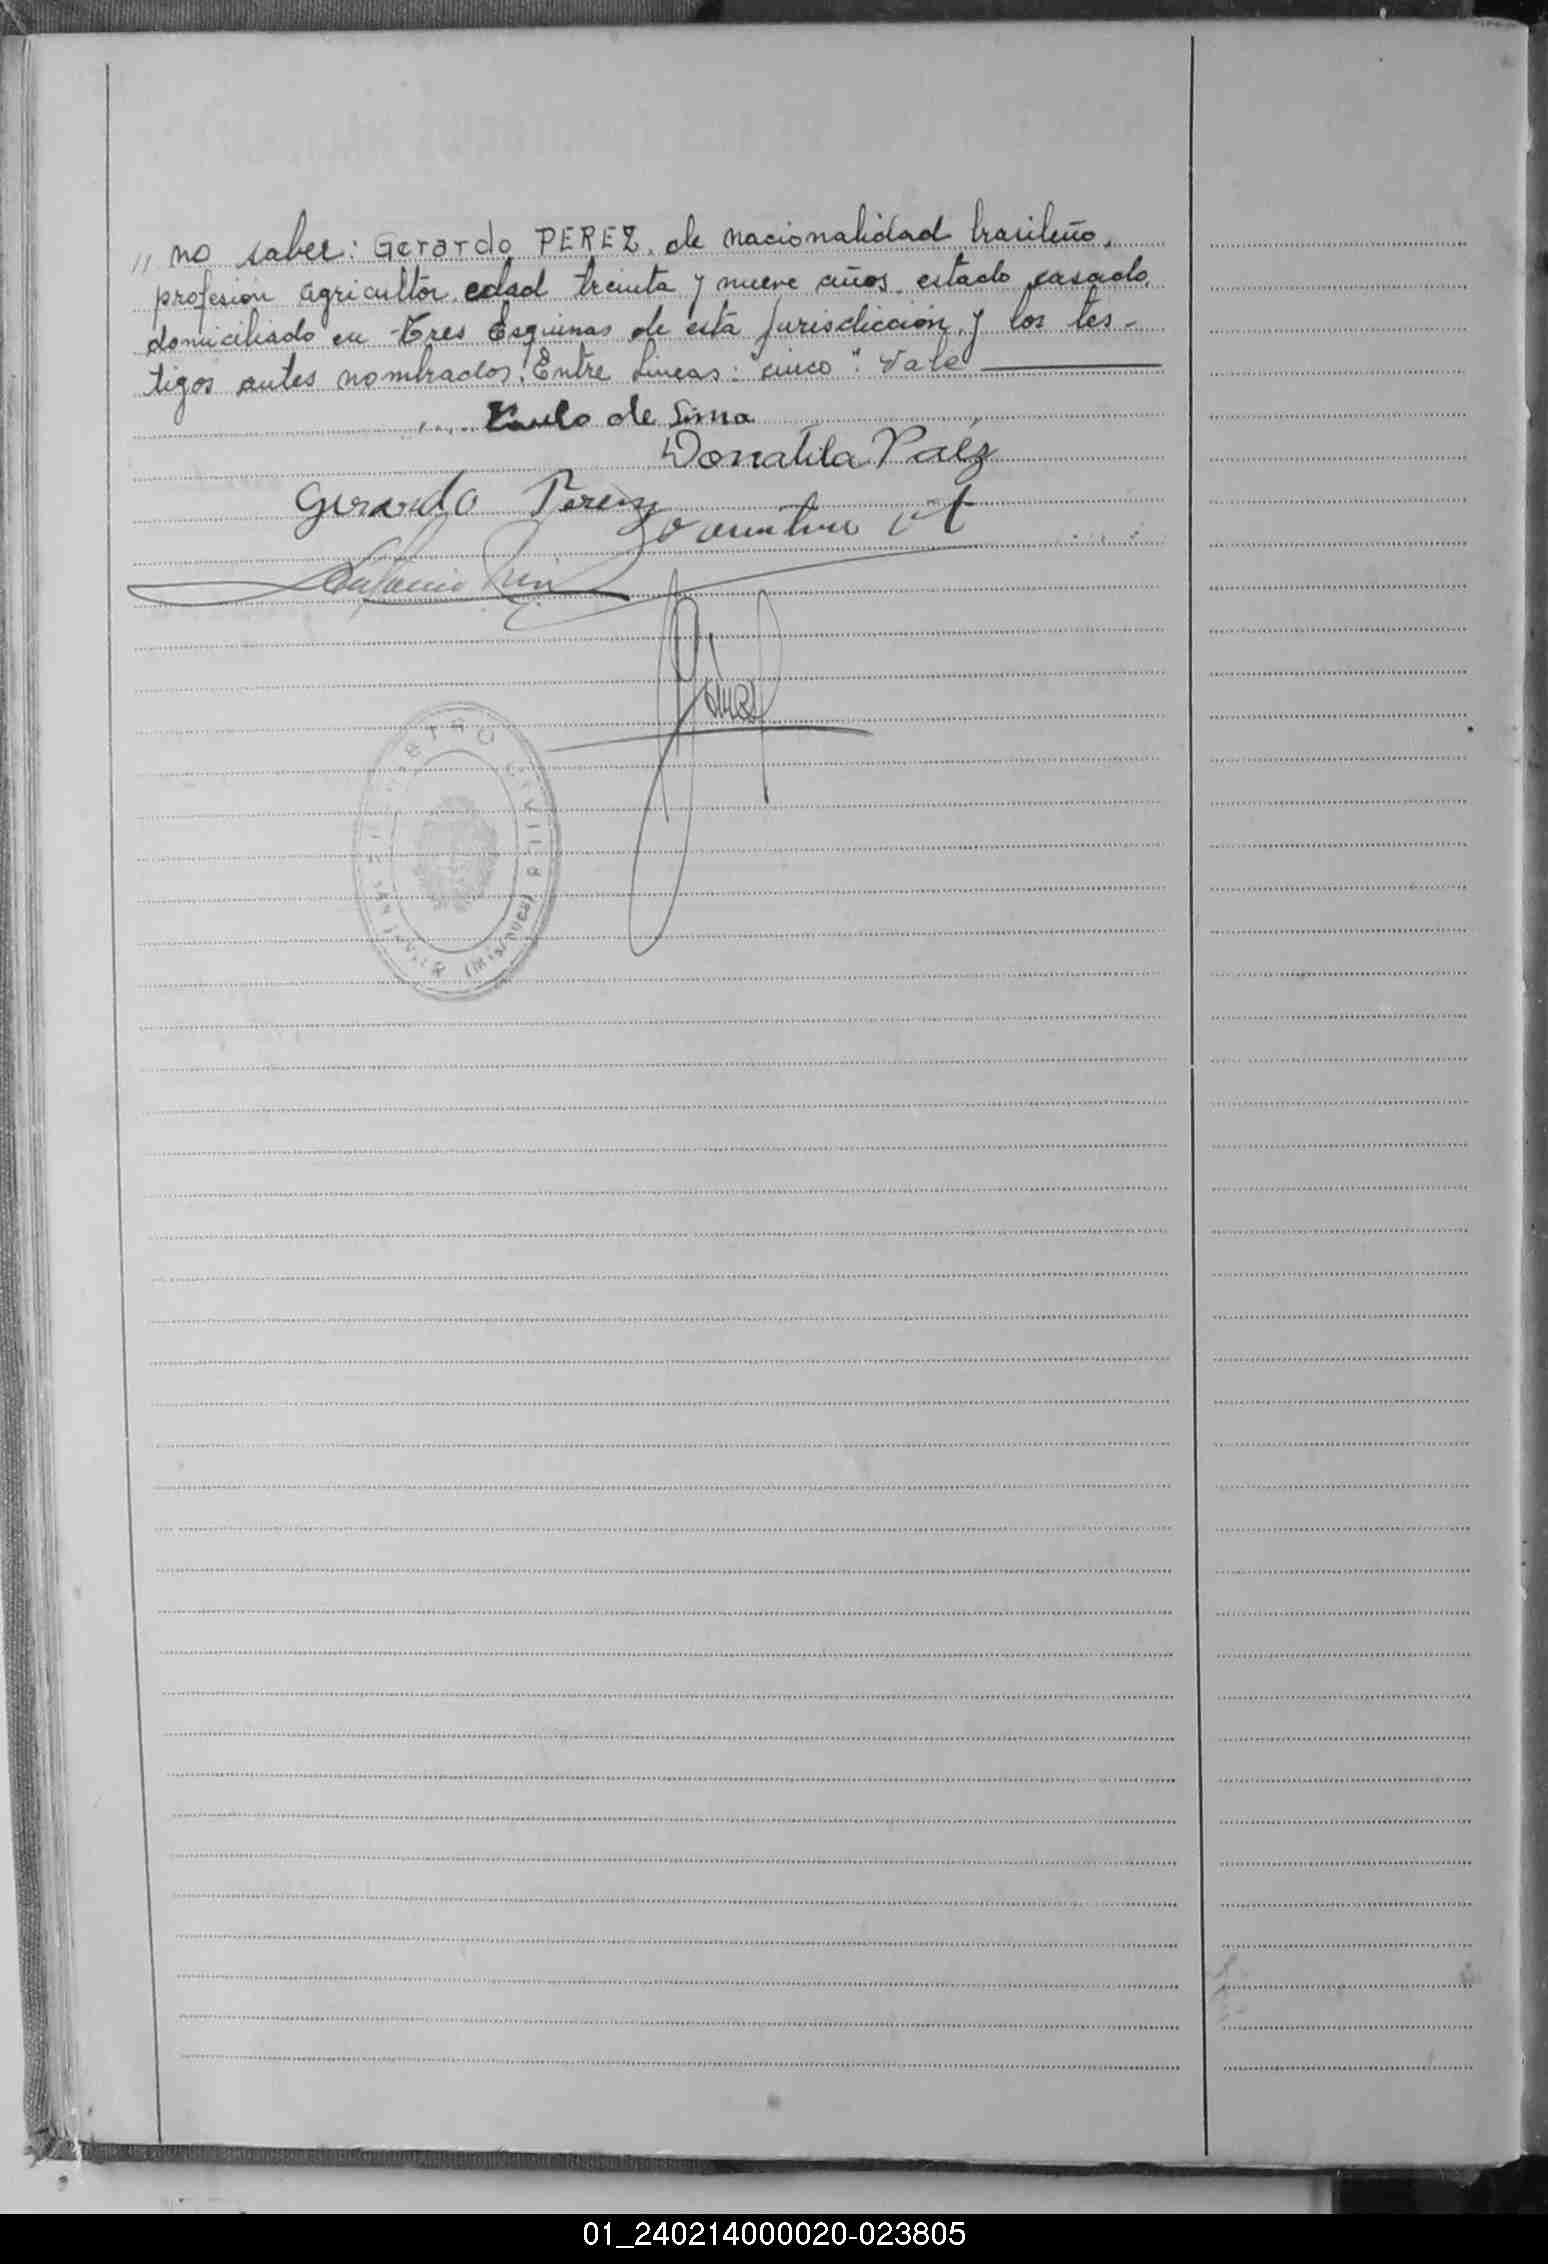 ,, no saber: Gerardo PEREZ, de nacionalidad brasileño,
profesión agricultor edad treinta y nueve años, estado casado,
domiciliado en Tres Esquinas de esta jurisdicción, y los tes-
tigos antes nombrados. Entre lineas: "cinco". Vale
Paulo de Lima
Donatila Paéz
Gerardo Perez
Antonio
REGISTRO CIVIL
SAN JAVIER (Misiones)
01_240214000020-023805